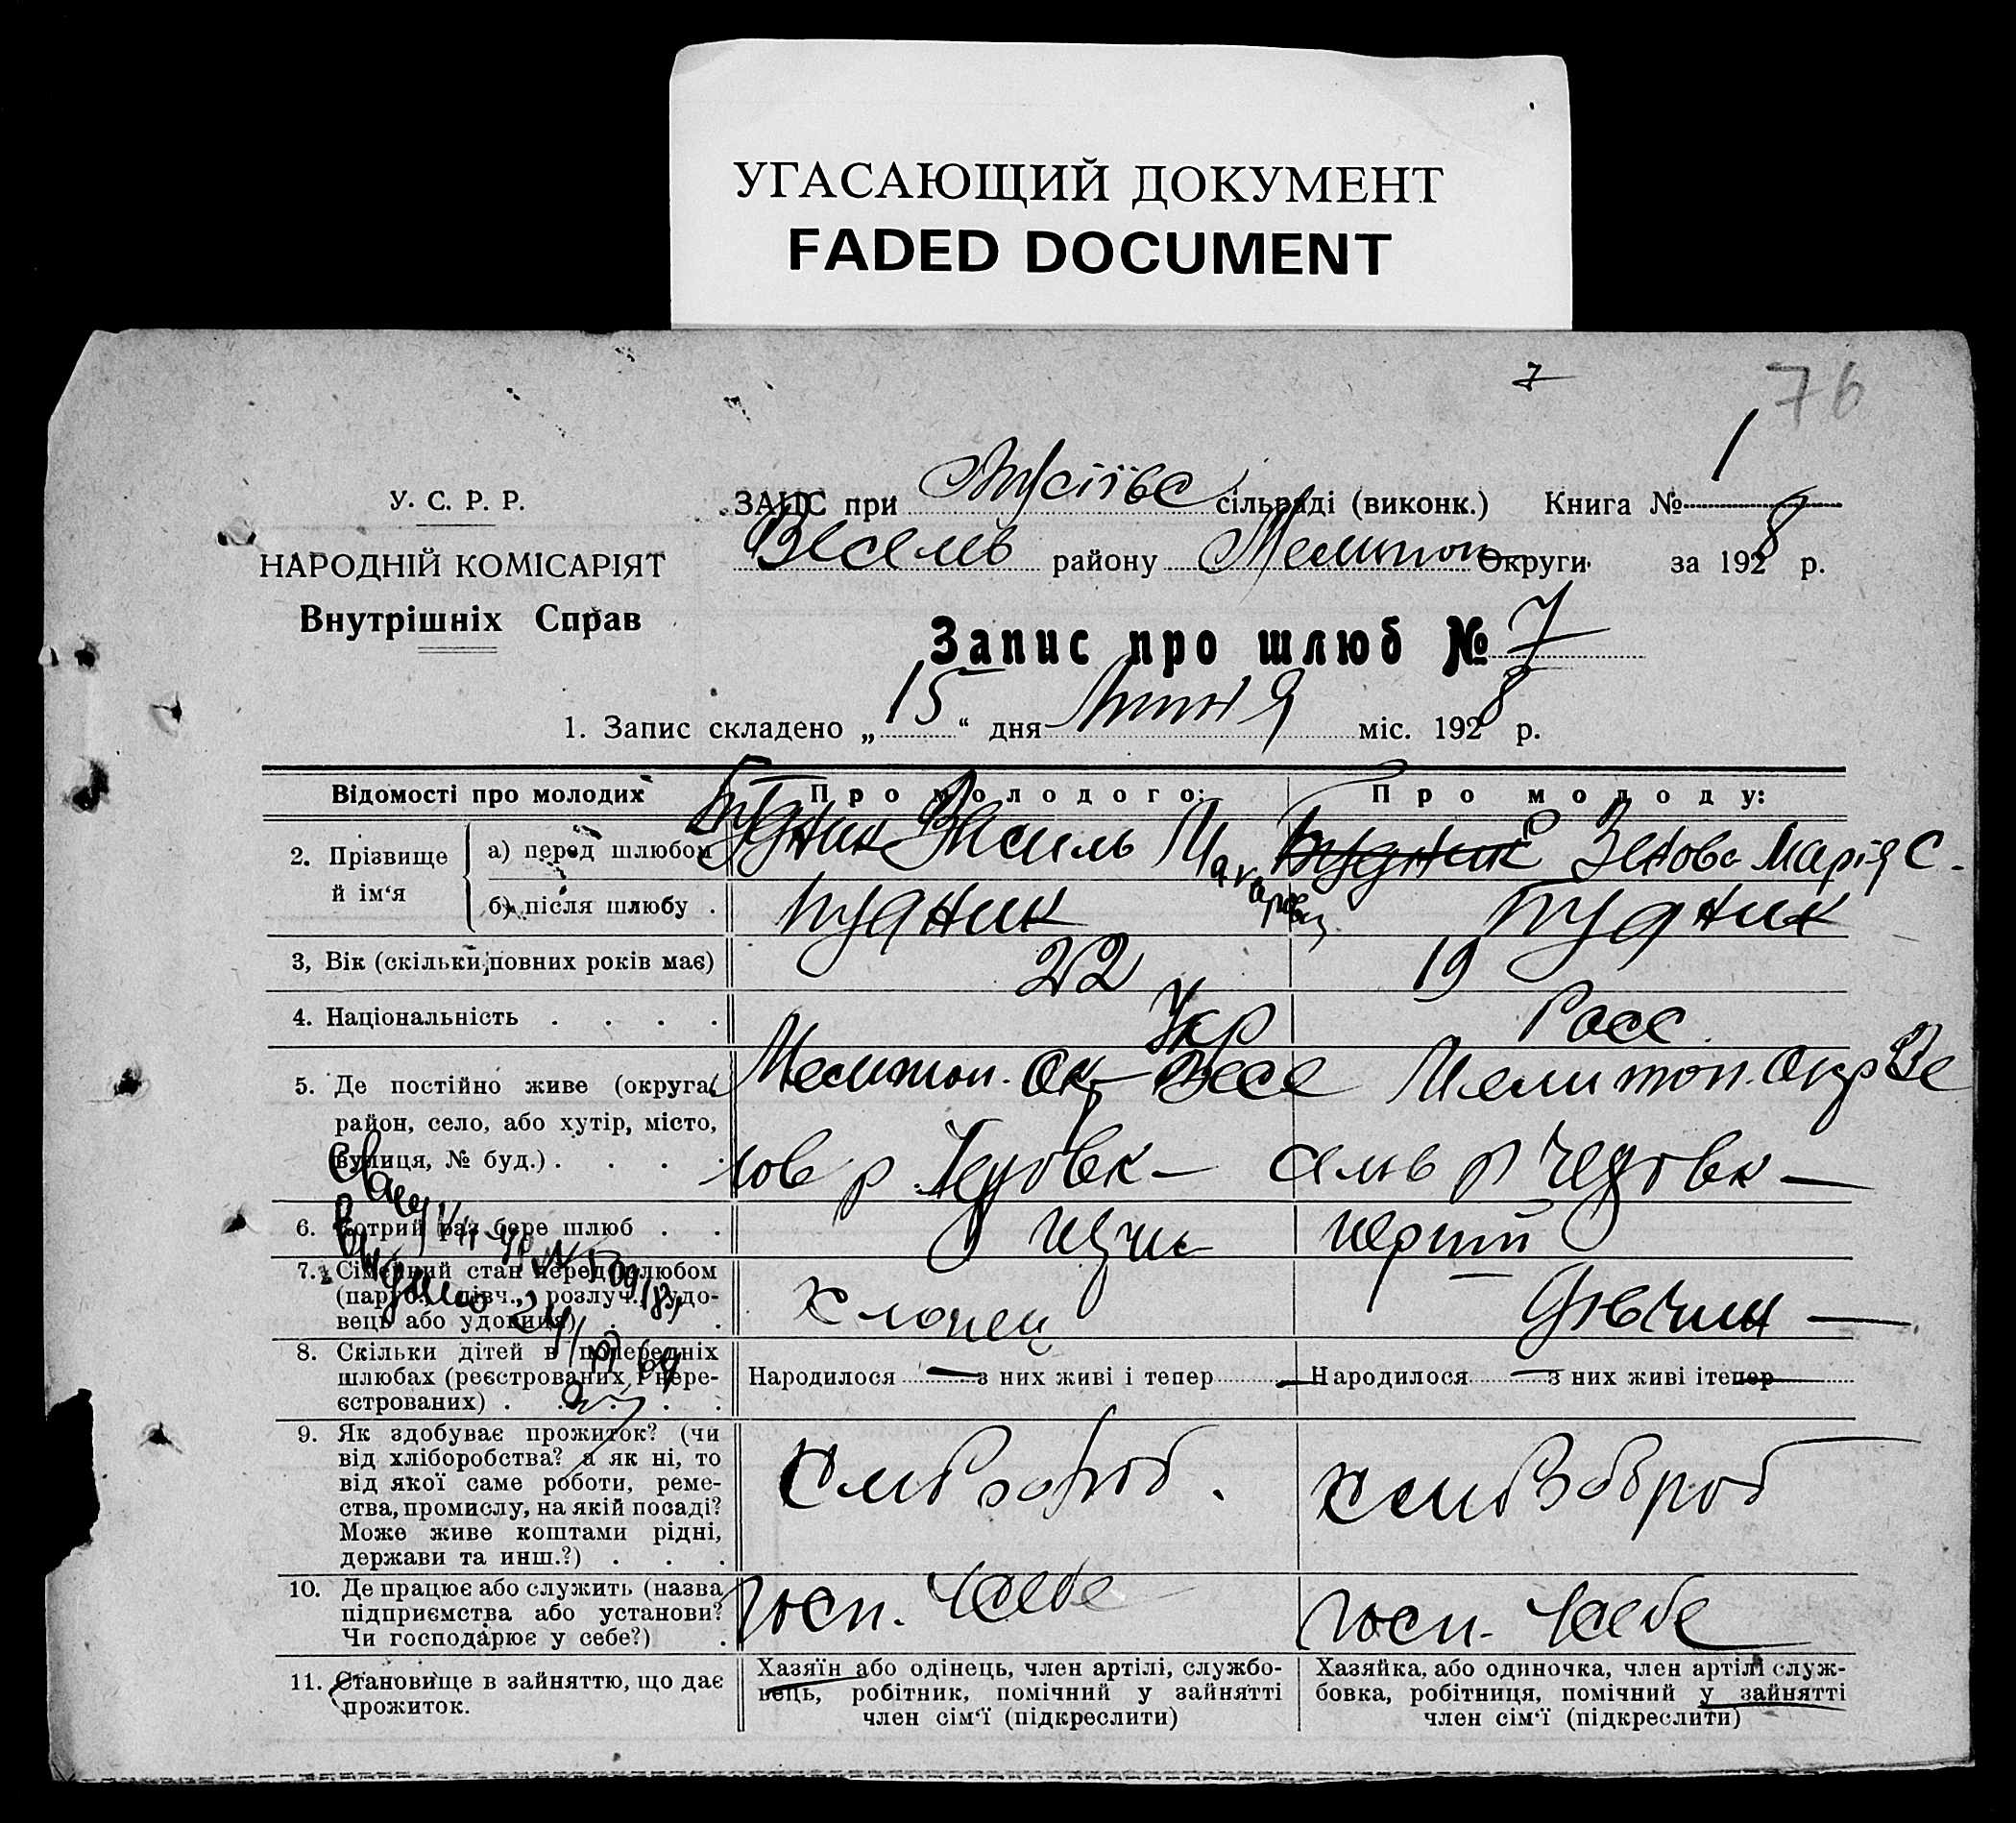 УГАСАЮЩИЙ ДОКУМЕНТ
FADED DOCUMENT
7
76
У. С. Р. Р.
НАРОДНІЙ КОМІСАРІЯТ
Внутрішніх Справ
ЗАЦС при сільраді (виконк.) Книга № 1
Веселів району Мелитоп Округи за 1928 р.
Запис про шлюб № 7
1. Запис складено „15“ дня Липня міс. 1928 р.
Відомості про молодих
Про молодого:
Про молоду:
2. Прізвище й ім'я
а) перед шлюбом
Будник Василь Макарович
Будник Зенова Марія С.
б) після шлюбу .
Будник
Будник
3, Вік (скільки повних років має)
22
19
4. Національність . . . .
Укр
Росс.
5. Де постійно живе (округа,
район, село, або хутір, місто,
вулиця, № буд.) . . . .
Мелитоп. Окр Весе
лов р
Мелитоп. Окр Ве
селів р
6. Котрий раз бере шлюб . .
перший
7. Сімейний стан перед шлюбом
(паруб., дівч., розлуч., удо-
вець або удовиця) . .
хлопец
дівчин
8. Скільки дітей в попередніх
шлюбах (реєстрованих і нере-
єстрованих) . . . . .
Народилося — з них живі і тепер —
Народилося — з них живі ітепер —
9. Як здобуває прожиток? (чи
від хліборобства? а як ні, то
від якої саме роботи, реме-
ства, промислу, на якій посаді?
Може живе коштами рідні,
держави та инш.?) . . .
хліборб.
хлібороб
10. Де працює або служить (назва
підприємства або установи?
Чи господарює у себе?) .
Госп. у себе
Госп. у себе
11. Становище в зайняттю, що дає
прожиток.
Хазяїн або одінець, член артілі, службо-
вець, робітник, помічний у зайнятті
член сім'ї (підкреслити)
Хазяйка, або одиночка, член артілі служ-
бовка, робітниця, помічний у зайнятті
член сім'ї (підкреслити)